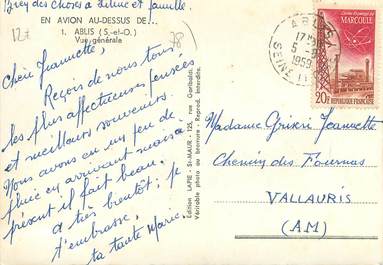 Bien des choses à Liline et famille.
EN AVION AU-DESSUS DE...
1. ABLIS (S.-et-O.)
Vue générale
Chère Jeannette,
Reçois de nous tous
les plus affectueuses pensées
et meilleurs souvenirs.
Nous avons eu un peu de
pluie en arrivant mais à
présent il fait beau.
à très bientôt; je
t'embrasse,
ta tante Marie.
Edition LAPIE - St-MAUR - 125, rue Garibaldi.
Véritable photo au bromure - Reprod. Interdite.
SEINE
17
5
1959
MARCOULE
20F
RÉPUBLIQUE FRANÇAISE
Madame Jeannette
Chemin des Fournas
VALLAURIS
(AM)